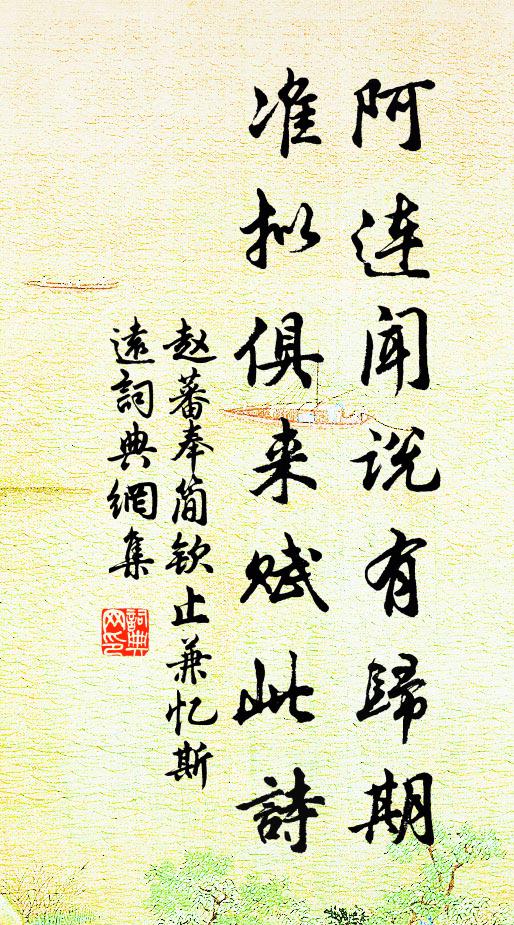 阿连闻说有歸期
准拟俱来赋此詩
赵蕃奉简欽止兼忆斯
遠詞典網集
詞典
网印